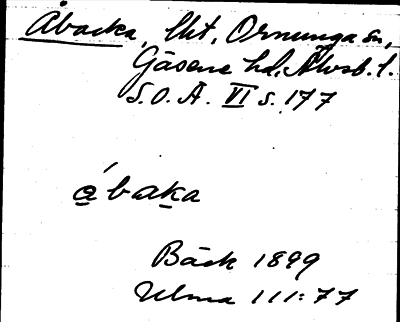 Åbacka, lht, Ornunga sn,
Gäsene hd, Älvsb. l.
S.O.Ä. VI s. 177
á̲bak̲a
Bäck 1899
Ulma 111:77